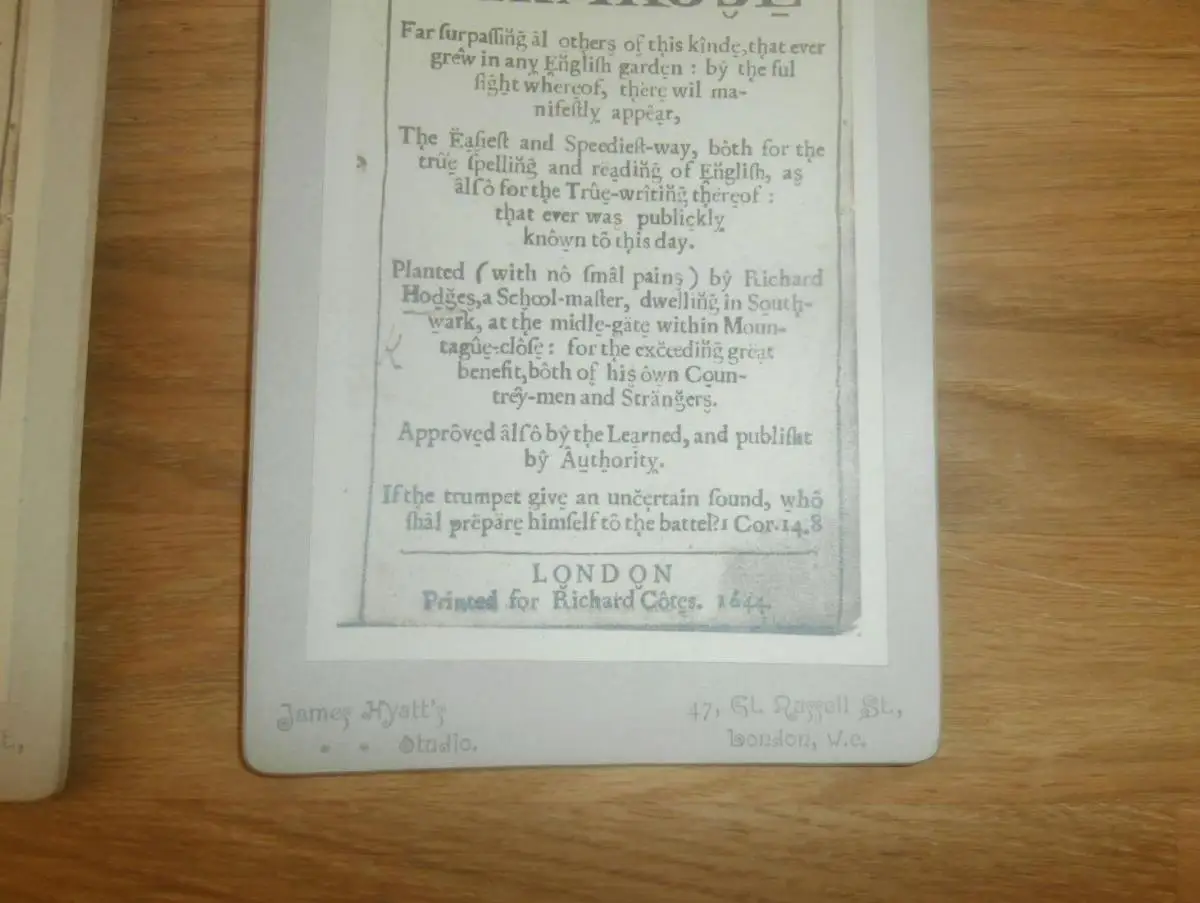 Far ſurpaſſin̆ḡ âl otherș of this kînde̩, that ever
grêw in any̩ En̆gliſh garde̩n : bŷ the ful
ſiḡh̩t whereo̩f, there wil ma-
nifeſtly̩ appêa̩r,
The Ëa̩ſieſt and Speedieſt-way, bôth for the
trûe̩ ſpellin̆ḡ and rëa̩din̆ḡ of En̆gliſh, aș
âlſô for the Trûe̩-writin̆ḡ there̩of :
that ever waș publicḳly̩
knôw̩n tô this day.
Planted ( with nô ſmâl painș ) bŷ Richard
Hodğe̩ș, a Sch̩ool-maſter, dwellin̆ḡ in Sou̩th-
wark, at the midle̩-gäte̩ within Moun-
tagûe̩-clôſe̩ : for the exc̆eedin̆ḡ grëa̩t
benefit, bôth of hiș ôw̩n Co̩un-
tre̩ŷ-men and Strän̆gerș.
Apprôve̩d âlſô bŷ the Lea̩rned, and publiſht
bŷ Âu̩thority̩.
If the trumpet give̩ an unc̆ertain ſound, w̩hô
ſhâl prëpäre̩ himſelf tô the battel? 1 Cor. 14.8
LO̩NDO̩N
Printed for Richard Côte̩ș. 1644.
James Hyatt's
Studio.
47, Gt. Russell St.,
London, W.C.
t.,